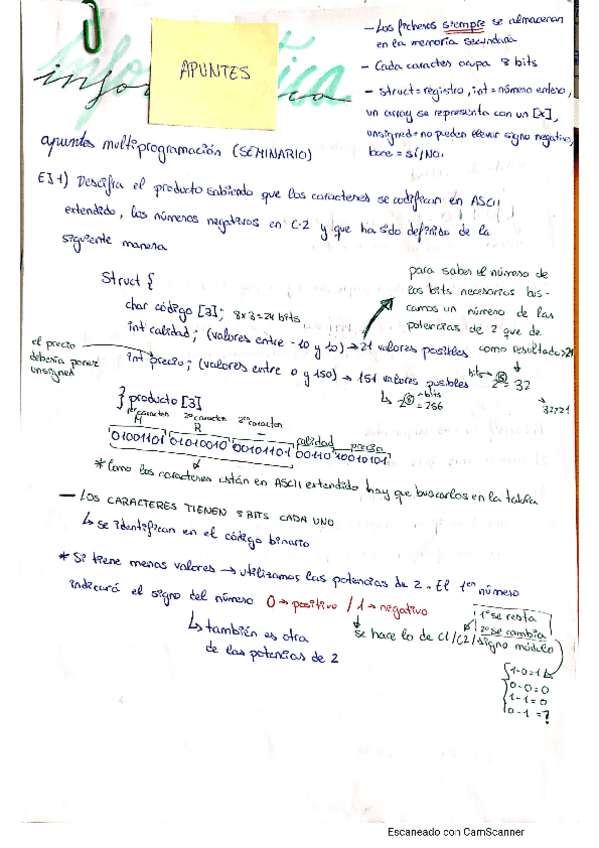 informática
APUNTES
- Los ficheros siempre se almacenan
en la memoria secundaria
- Cada caracter ocupa 8 bits
- struct = registro, int = número entero,
un array se representa con un [x],
unsigned = no pueden llevar signo negativo,
bore = sí/No.
apuntes multiprogramación (SEMINARIO)
EJ 1) Descifra el producto sabiendo que los caracteres se codifican en ASCII
extendido, los números negativos en C-2 y que ha sido definido de la
siguiente manera
Struct {
char código [3]; 8x3=24 bits
int calidad; (valores entre -10 y 10) → 21 valores posibles
int precio; (valores entre 0 y 150) → 151 valores posibles
} producto [3]
para saber el número de
los bits necesarios bus-
camos un número de las
potencias de 2 que de
como resultado>21
bits → 2⁵ = 32
32>21
↳ 2⁸ = 256
← bits
el precio
debería poner
unsigned
1er caracter 2º caracter 3er caracter
M R -
calidad precio
01001101 01010010 00101101 00110 10010101
* Como los caracteres están en ASCII extendido hay que buscarlos en la tabla
— LOS CARACTERES TIENEN 8 BITS CADA UNO
↳ se identifican en el código binario
* Si tiene menos valores → utilizamos las potencias de 2. El 1er número
indicará el signo del número 0 → positivo / 1 → negativo
↳ también es otra
de las potencias de 2
se hace lo de C1/C2/signo módulo
1º se resta
2º se cambia
1-0=1
0-0=0
1-1=0
0-1=?
Escaneado con CamScanner